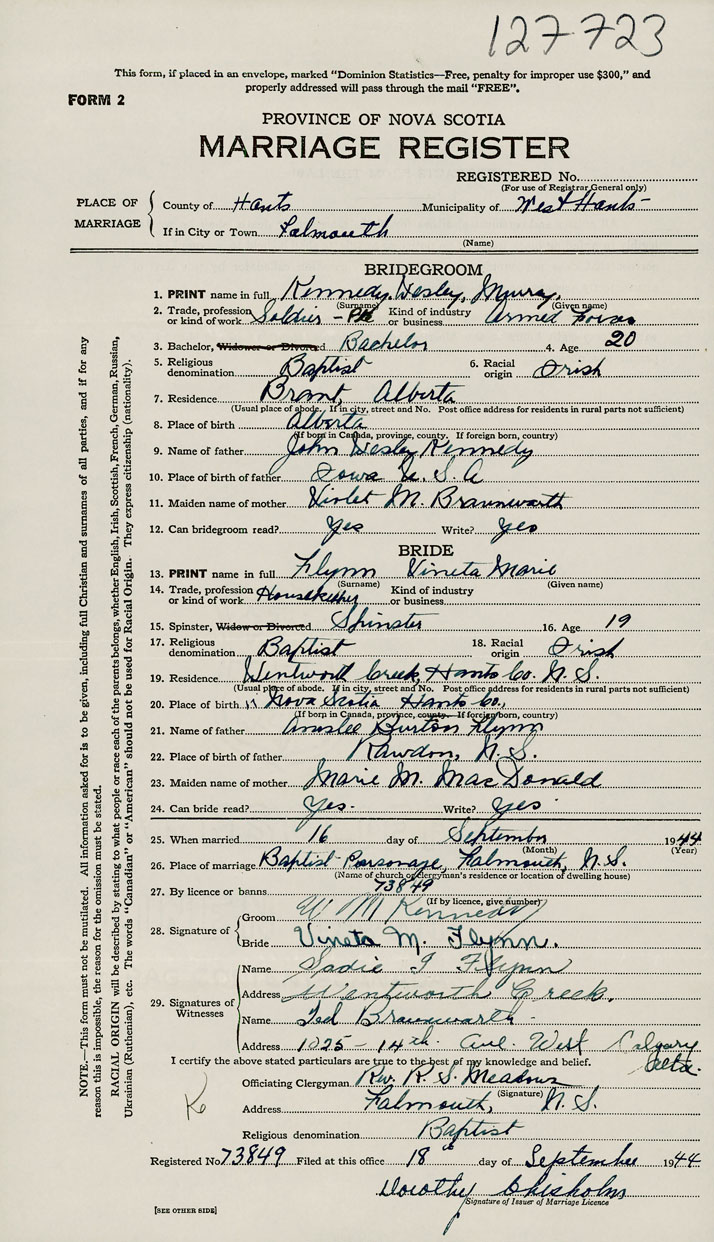 127723
This form, if placed in an envelope, marked "Dominion Statistics—Free, penalty for improper use $300," and
properly addressed will pass through the mail "FREE".
FORM 2
PROVINCE OF NOVA SCOTIA
MARRIAGE REGISTER
REGISTERED No.
(For use of Registrar General only)
PLACE OF MARRIAGE
County of Hants Municipality of West Hants
If in City or Town Falmouth
(Name)
BRIDEGROOM
1. PRINT name in full Kennedy, Wesley, Murray.
(Surname) (Given name)
2. Trade, profession or kind of work Soldier - Pte Kind of industry or business Armed Forces
3. Bachelor, Widower or Divorced Bachelor 4. Age 20
5. Religious denomination Baptist 6. Racial origin Irish
7. Residence Brant, Alberta
(Usual place of abode. If in city, street and No. Post office address for residents in rural parts not sufficient)
8. Place of birth Alberta
(If born in Canada, province, county. If foreign born, country)
9. Name of father John Wesley Kennedy
10. Place of birth of father Iowa U.S.A
11. Maiden name of mother Violet M. Braunwarth
12. Can bridegroom read? Yes Write? Yes
BRIDE
13. PRINT name in full Flynn Vineta Marie
(Surname) (Given name)
14. Trade, profession or kind of work Housekeeper Kind of industry or business
15. Spinster, Widow or Divorced Spinster 16. Age 19
17. Religious denomination Baptist 18. Racial origin Irish
19. Residence Wentworth Creek, Hants Co. N.S.
(Usual place of abode. If in city, street and No. Post office address for residents in rural parts not sufficient)
20. Place of birth " Nova Scotia Hants Co.,
(If born in Canada, province, county. If foreign born, country)
21. Name of father Burton Flynn
22. Place of birth of father Rawdon, N.S.
23. Maiden name of mother Marie M. MacDonald
24. Can bride read? Yes. Write? Yes
25. When married 16 day of September 1944
(Month) (Year)
26. Place of marriage Baptist Parsonage, Falmouth, N.S.
(Name of church or clergyman's residence or location of dwelling house)
27. By licence or banns 73849
(If by licence, give number)
28. Signature of
Groom W M Kennedy
Bride Vineta M. Flynn.
29. Signatures of Witnesses
Name Sadie I Flynn
Address Wentworth Creek.
Name Ted Braunwarth
Address 1025 - 14th. Ave. West Calgary
Alta.
I certify the above stated particulars are true to the best of my knowledge and belief.
Officiating Clergyman Rev. R. S. Meadows
(Signature)
Address Falmouth, N.S.
Religious denomination Baptist
Registered No. 73849 Filed at this office 18th day of September 1944
Dorothy Chisholm
Signature of Issuer of Marriage Licence
[SEE OTHER SIDE]
NOTE.—This form must not be mutilated. All information asked for is to be given, including full Christian and surnames of all parties, and if for any
reason this is impossible, the reason for the omission must be stated.
RACIAL ORIGIN will be described by stating to what people or race each of the parents belongs, whether English, Irish, Scottish, French, German, Russian,
Ukrainian (Ruthenian), etc. The words "Canadian" or "American" should not be used for Racial Origin. They express citizenship (nationality).